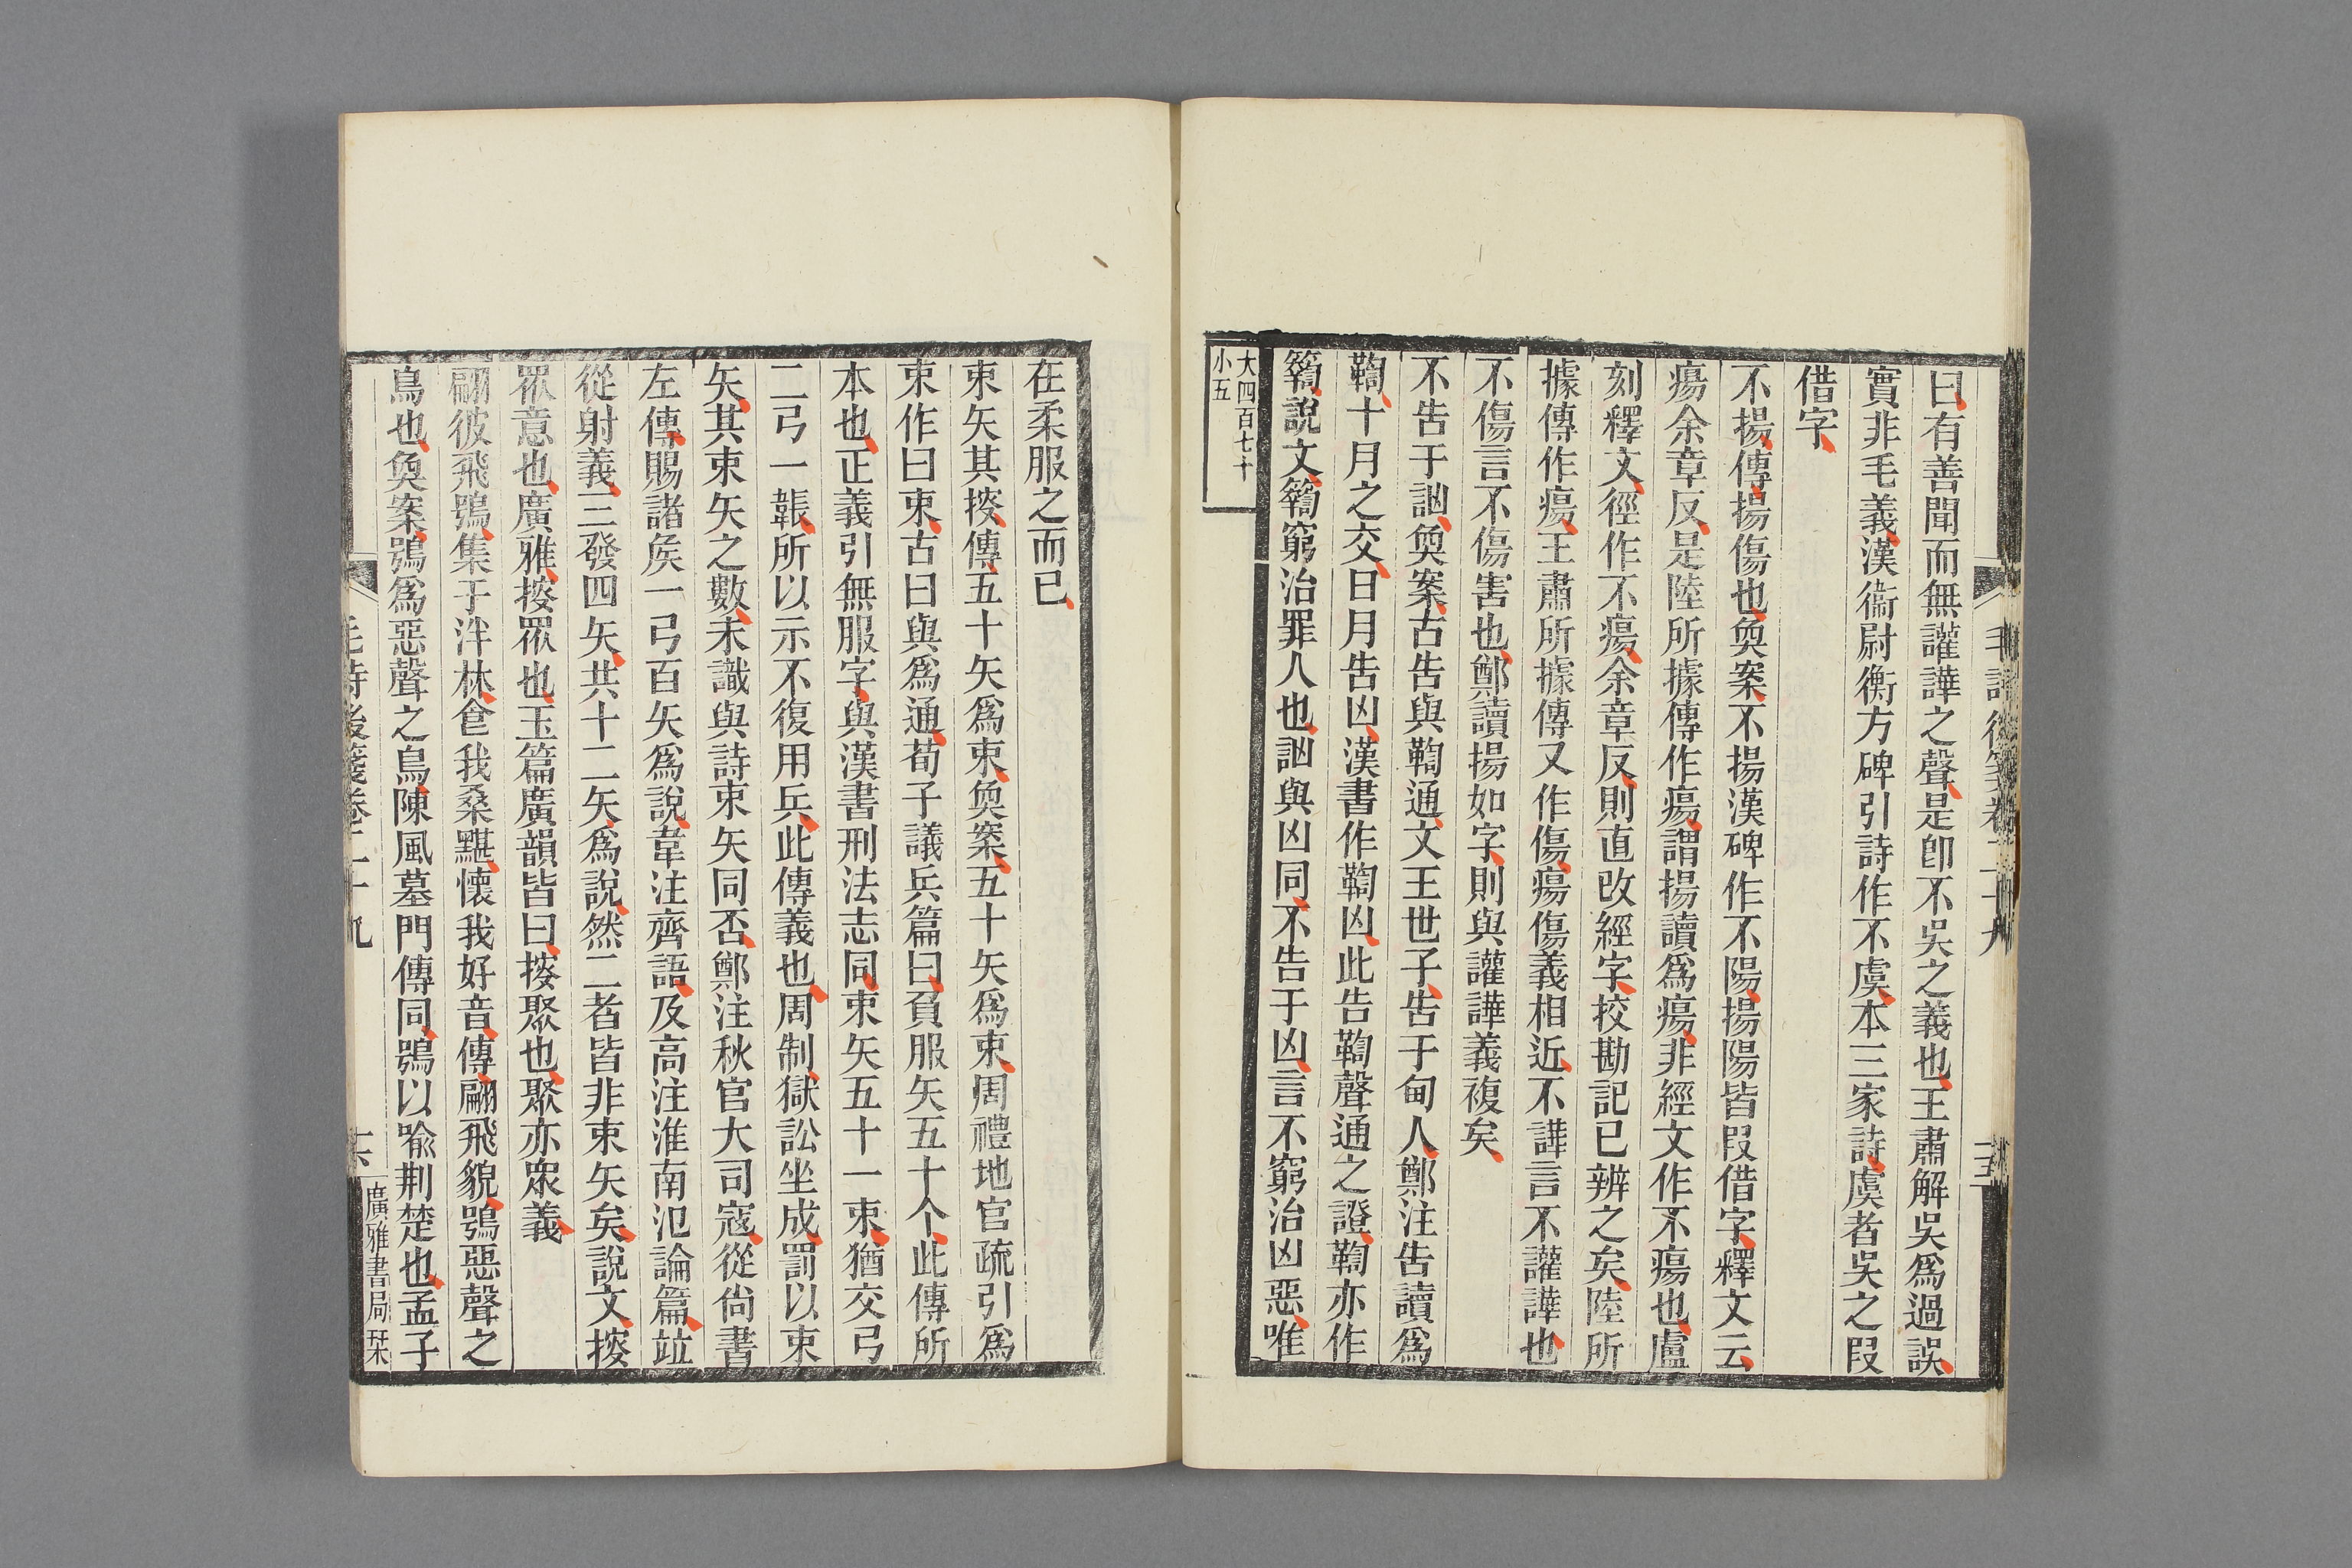 毛詩後箋卷二十九
十五
曰有善聞而無讙譁之聲是卽不吳之義也王肅解吳爲過誤
實非毛義漢衞尉衡方碑引詩作不虞本三家詩虞者吳之叚
借字
不揚傳揚傷也奐案不揚漢碑作不陽揚陽皆叚借字釋文云
瘍余章反是陸所據傳作瘍謂揚讀爲瘍非經文作不瘍也盧
刻釋文徑作不瘍余章反則直改經字挍勘記已辨之矣陸所
據傳作瘍王肅所據傳又作傷瘍傷義相近不譁言不讙譁也
不傷言不傷害也鄭讀揚如字則與讙譁義複矣
不告于訩奐案古告與鞫通文王世子告于甸人鄭注告讀爲
鞫十月之交日月告凶漢書作鞫凶此告鞫聲通之證鞫亦作
𥷚說文𥷚窮治罪人也訩與凶同不告于凶言不窮治凶惡唯
大四百七十
小五
在柔服之而已
束矢其搜傳五十矢爲束奐案五十矢爲束周禮地官疏引爲
束作曰束古曰與爲通荀子議兵篇曰負服矢五十个此傳所
本也正義引無服字與漢書刑法志同束矢五十一束猶交弓
二弓一韔所以示不復用兵此傳義也周制獄訟坐成罰以束
矢其束矢之數未識與詩束矢同否鄭注秋官大司寇從尙書
左傳賜諸矦一弓百矢爲說韋注齊語及高注淮南氾論篇竝
從射義三發四矢共十二矢爲說然二者皆非束矢矣說文搜
眾意也廣雅搜眾也玉篇廣韻皆曰搜聚也聚亦眾義
翩彼飛鴞集于泮林食我桑黮懷我好音傳翩飛貌鴞惡聲之
鳥也奐案鴞爲惡聲之鳥陳風墓門傳同鴞以喻荆楚也孟子
毛詩後箋卷二十九
十六
廣雅書局栞